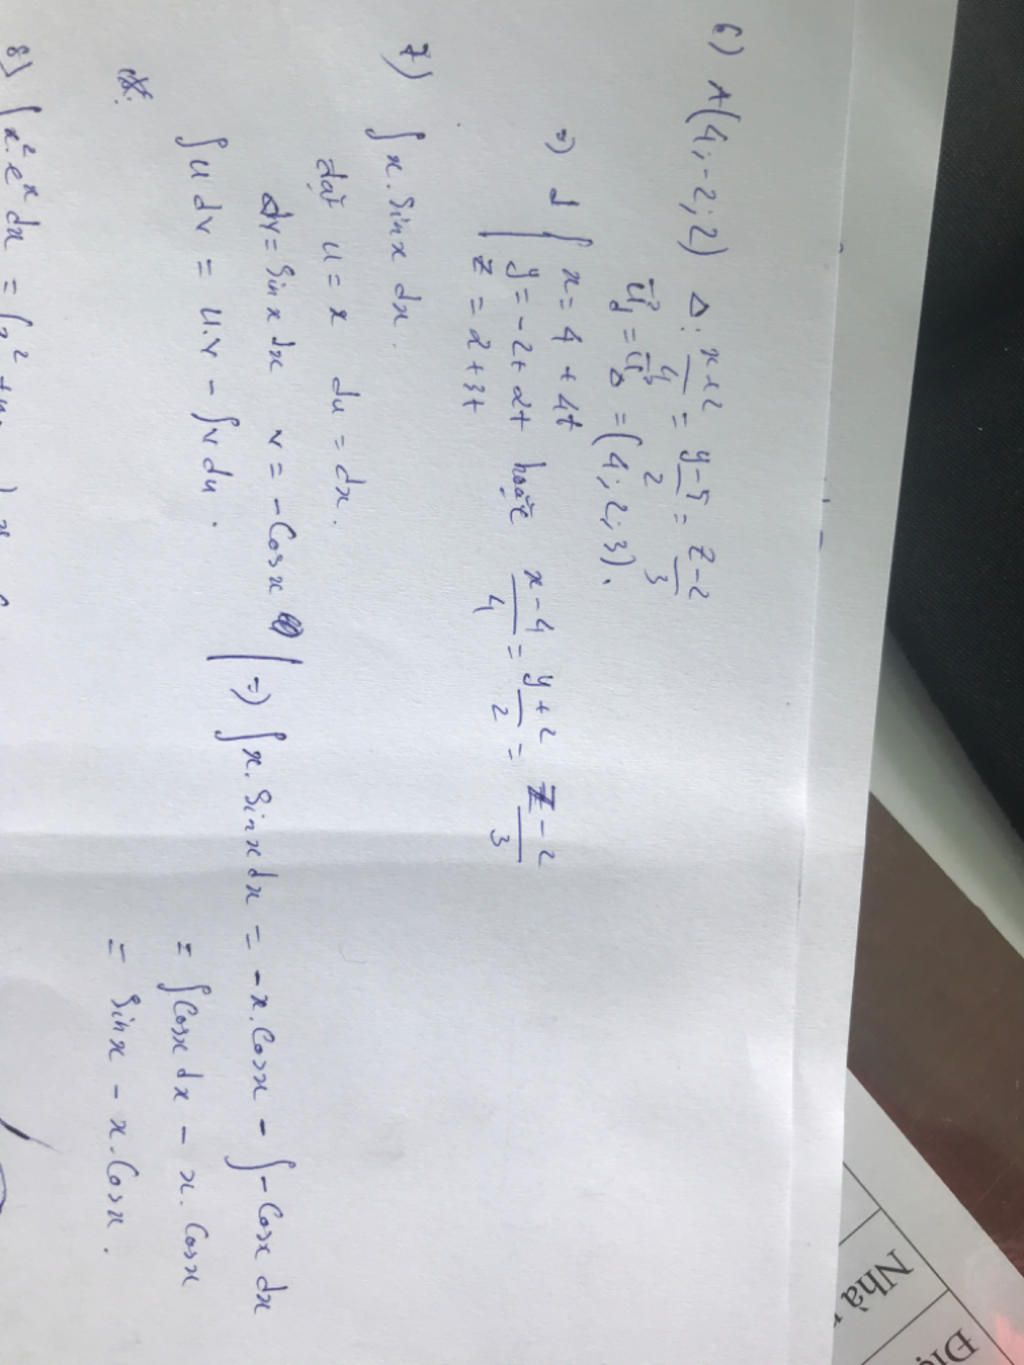 6) A(4;-2;2) Δ: x+2/4 = y-5/2 = z-2/3
u⃗d = u⃗Δ = (4;2;3).
=) d { x = 4 + 4t
y = -2 + 2t hoặc x-4/4 = y+2/2 = z-2/3
z = 2+3t
7) ∫ x. Sinx dx.
đặt u = x du = dx.
dv = Sinx dx v = -Cosx
∫ u dv = u.v - ∫ v du.
=) ∫ x. Sinx dx = -x. Cosx - ∫ -Cosx dx
= ∫ Cosx dx - x. Cosx
= Sinx - x. Cosx.
8) ∫ x². eˣ dx =
Nhà